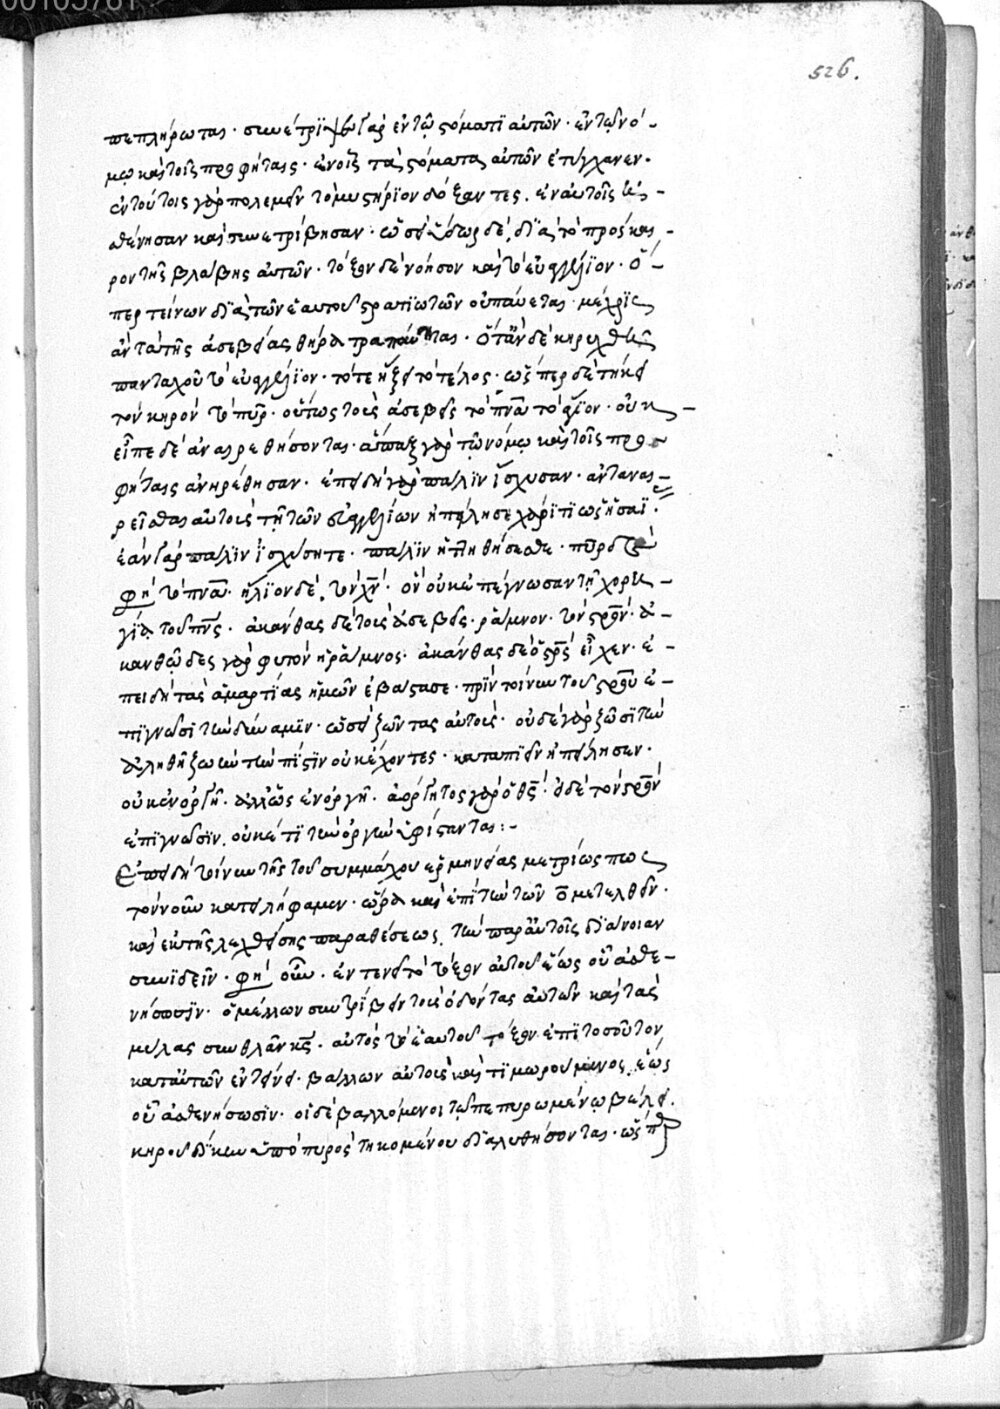 00105761
526.
πεπλήρωται· συνέτριψε γὰρ ἐν τῷ στόματι αὐτῶν· ἐν τῷ νό-
μῳ καὶ τοῖς προφήταις· ἐν οἷς τὰ στόματα αὐτῶν ἐτύγχανεν·
ἐν τούτοις γὰρ πολεμεῖν τὸ μυστήριον δόξαντες, ἐν αὐτοῖς ἠσ-
θένησαν καὶ συνετρίβησαν· ὡσεὶ ὕδωρ δὲ, διὰ τὸ πρόσκαι-
ρον τῆς βλάβης αὐτῶν· τόξον δὲ νόησον καὶ τὸ εὐαγγέλιον· ὅ-
περ τείνων διὰ τῶν ἑαυτοῦ στρατιωτῶν οὐ παύεται· μέχρις
ἂν τὰ τῆς ἀσεβείας θηρία τραπῶνται· ὅταν δὲ κηρυχθῇ
πανταχοῦ τὸ εὐαγγέλιον· τότε ἥξει τὸ τέλος· ὥσπερ δὲ τήκει
τὸν κηρὸν τὸ πῦρ· οὕτως τοὺς ἀσεβεῖς τὸ πνα τὸ ἅγιον· οὐκ
εἶπε δὲ ἀναιρεθήσονται· ἅπαξ γὰρ τῷ νόμῳ καὶ τοῖς προ-
φήταις ἀνηρέθησαν· ἐπειδὴ γὰρ πάλιν ἴσχυσαν· ἀνταναι-
ρεῖσθαι αὐτοὺς τῇ τῶν εὐαγγελίων ἠπείλησε χάριτι ὡς ἡσαΐ·
ἐὰν γὰρ πάλιν ἰσχύσητε· πάλιν ἡττηθήσεσθε· πῦρ
φη τὸ πνα· ἥλιον δὲ, τὸν χν· ὃν οὐκ ἐπέγνωσαν τῇ χορη-
γίᾳ τοῦ πνς· ἀκάνθας δὲ τοὺς ἀσεβεῖς· ῥάμνον· τὸν στρον· ἀ-
κανθῶδες γὰρ φυτὸν ἡ ῥάμνος· ἀκάνθας δὲ ὁ στρος εἶχεν· ἐ-
πειδὴ τὰς ἁμαρτίας ἡμῶν ἐβάστασε· πρὶν τοίνυν τοῦ στρου ἐ-
πιγνῶσι τὴν δύναμιν· ὡσεὶ ζῶντας αὐτούς· οὐδὲ γὰρ ζῶσι τὴν
ἀληθῆ ζωὴν τὴν πίστιν οὐκ ἔχοντες· καταπιεῖν ἠπείλησεν·
οὐκ ἐν ὀργῇ· ἀλλ' ὡς ἐν ὀργῇ· ἀόργητος γὰρ ὁ θς· οἱ δὲ τὸν στρον
ἐπιγνῶσιν, οὐκέτι τὴν ὀργὴν ὑφίστανται:-
Ἐπειδὴ τοίνυν τῆς τοῦ συμμάχου ἑρμηνείας μετρίως πως
τὸν νοῦν κατειλήφαμεν· ὥρα καὶ ἐπὶ τὴν τῶν ο μετελθεῖν·
καὶ ἐκ τῆς λεχθείσης παραθέσεως, τὴν παρ' αὐτοῖς διάνοιαν
συνιδεῖν· φη οὖν· ἐντενεῖ τὸ τόξον αὐτοῦ ἕως οὗ ἀσθε-
νήσωσιν· ὁ μέλλων συντρίβειν τοὺς ὀδόντας αὐτῶν καὶ τὰς
μύλας συνθλᾶν κς· αὐτὸς τὸ ἑαυτοῦ τόξον ἐπὶ τοσοῦτον
κατ' αὐτῶν ἐντείνει· βάλλων αὐτοὺς καὶ τιμωρούμενος, ἕως
οὗ ἀσθενήσωσιν· οἱ δὲ βαλλόμενοι τῷ πεπυρωμένῳ βέλει·
κηροῦ δίκην ὑπὸ πυρὸς τηκομένου διαλυθήσονται· ὥσπερ